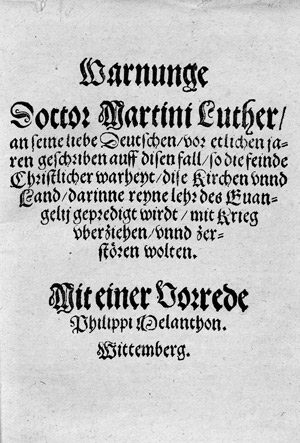 Warnunge
Doctor Martini Luther/
an seine liebe Deutschen/vor etlichen ja-
ren geschriben auff disen fall/so die feinde
Christlicher warheyt/dise Kirchen vnnd
Land/darinne reyne lehr des Euan-
gelij gepredigt wirdt/mit Krieg
vberziehen/vnnd zer-
stören wolten.
Mit einer Vorrede
Philippi Melanthon.
Wittemberg.